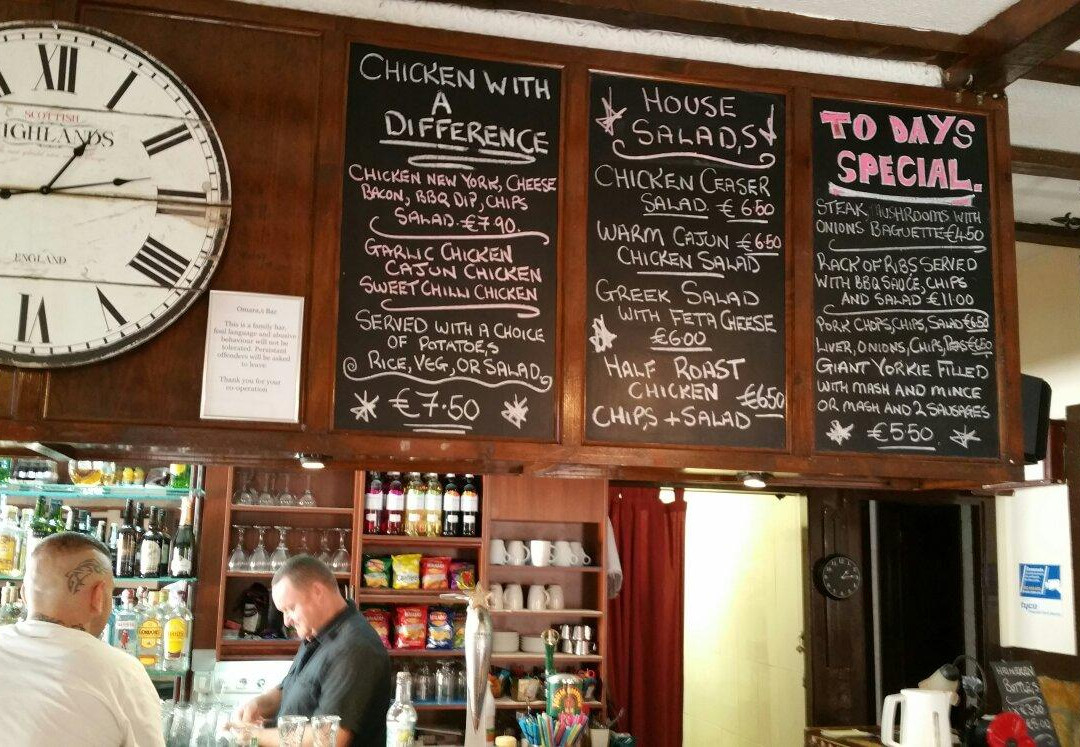 XII
I
II
III
IIII
V
VI
SCOTTISH
HIGHLANDS
ENGLAND
This is a family bar,
foul language and abusive
behaviour will not be
tolerated. Persistant
offenders will be asked
to leave
Thank you for your
co-operation
CHICKEN WITH
A
DIFFERENCE
CHICKEN NEW YORK, CHEESE
BACON, BBQ DIP, CHIPS
SALAD. €7.90.
GARLIC CHICKEN
CAJUN CHICKEN
SWEET CHILLI CHICKEN
SERVED WITH A CHOICE
OF POTATOE,S
RICE, VEG, OR SALAD
€7.50
HOUSE
SALAD,S
CHICKEN CEASER
SALAD €6.50
WARM CAJUN €6.50
CHICKEN SALAD
GREEK SALAD
WITH FETA CHEESE
€6.00
HALF ROAST
CHICKEN €6.50
CHIP,S + SALAD
TO DAYS
SPECIAL.
STEAK MUSHROOMS WITH
ONIONS BAGUETTE €4.50
RACK OF RIBS SERVED
WITH BBQ SAUCE, CHIPS
AND SALAD €11.00
PORK CHOPS, CHIPS, SALAD €6.50
LIVER, ONIONS, CHIPS, PEAS €6.50
GIANT YORKIE FILLED
WITH MASH AND MINCE
OR MASH AND 2 SAUSAGES
€5.50
tyco
HEINEKEN
BOTTLE,S